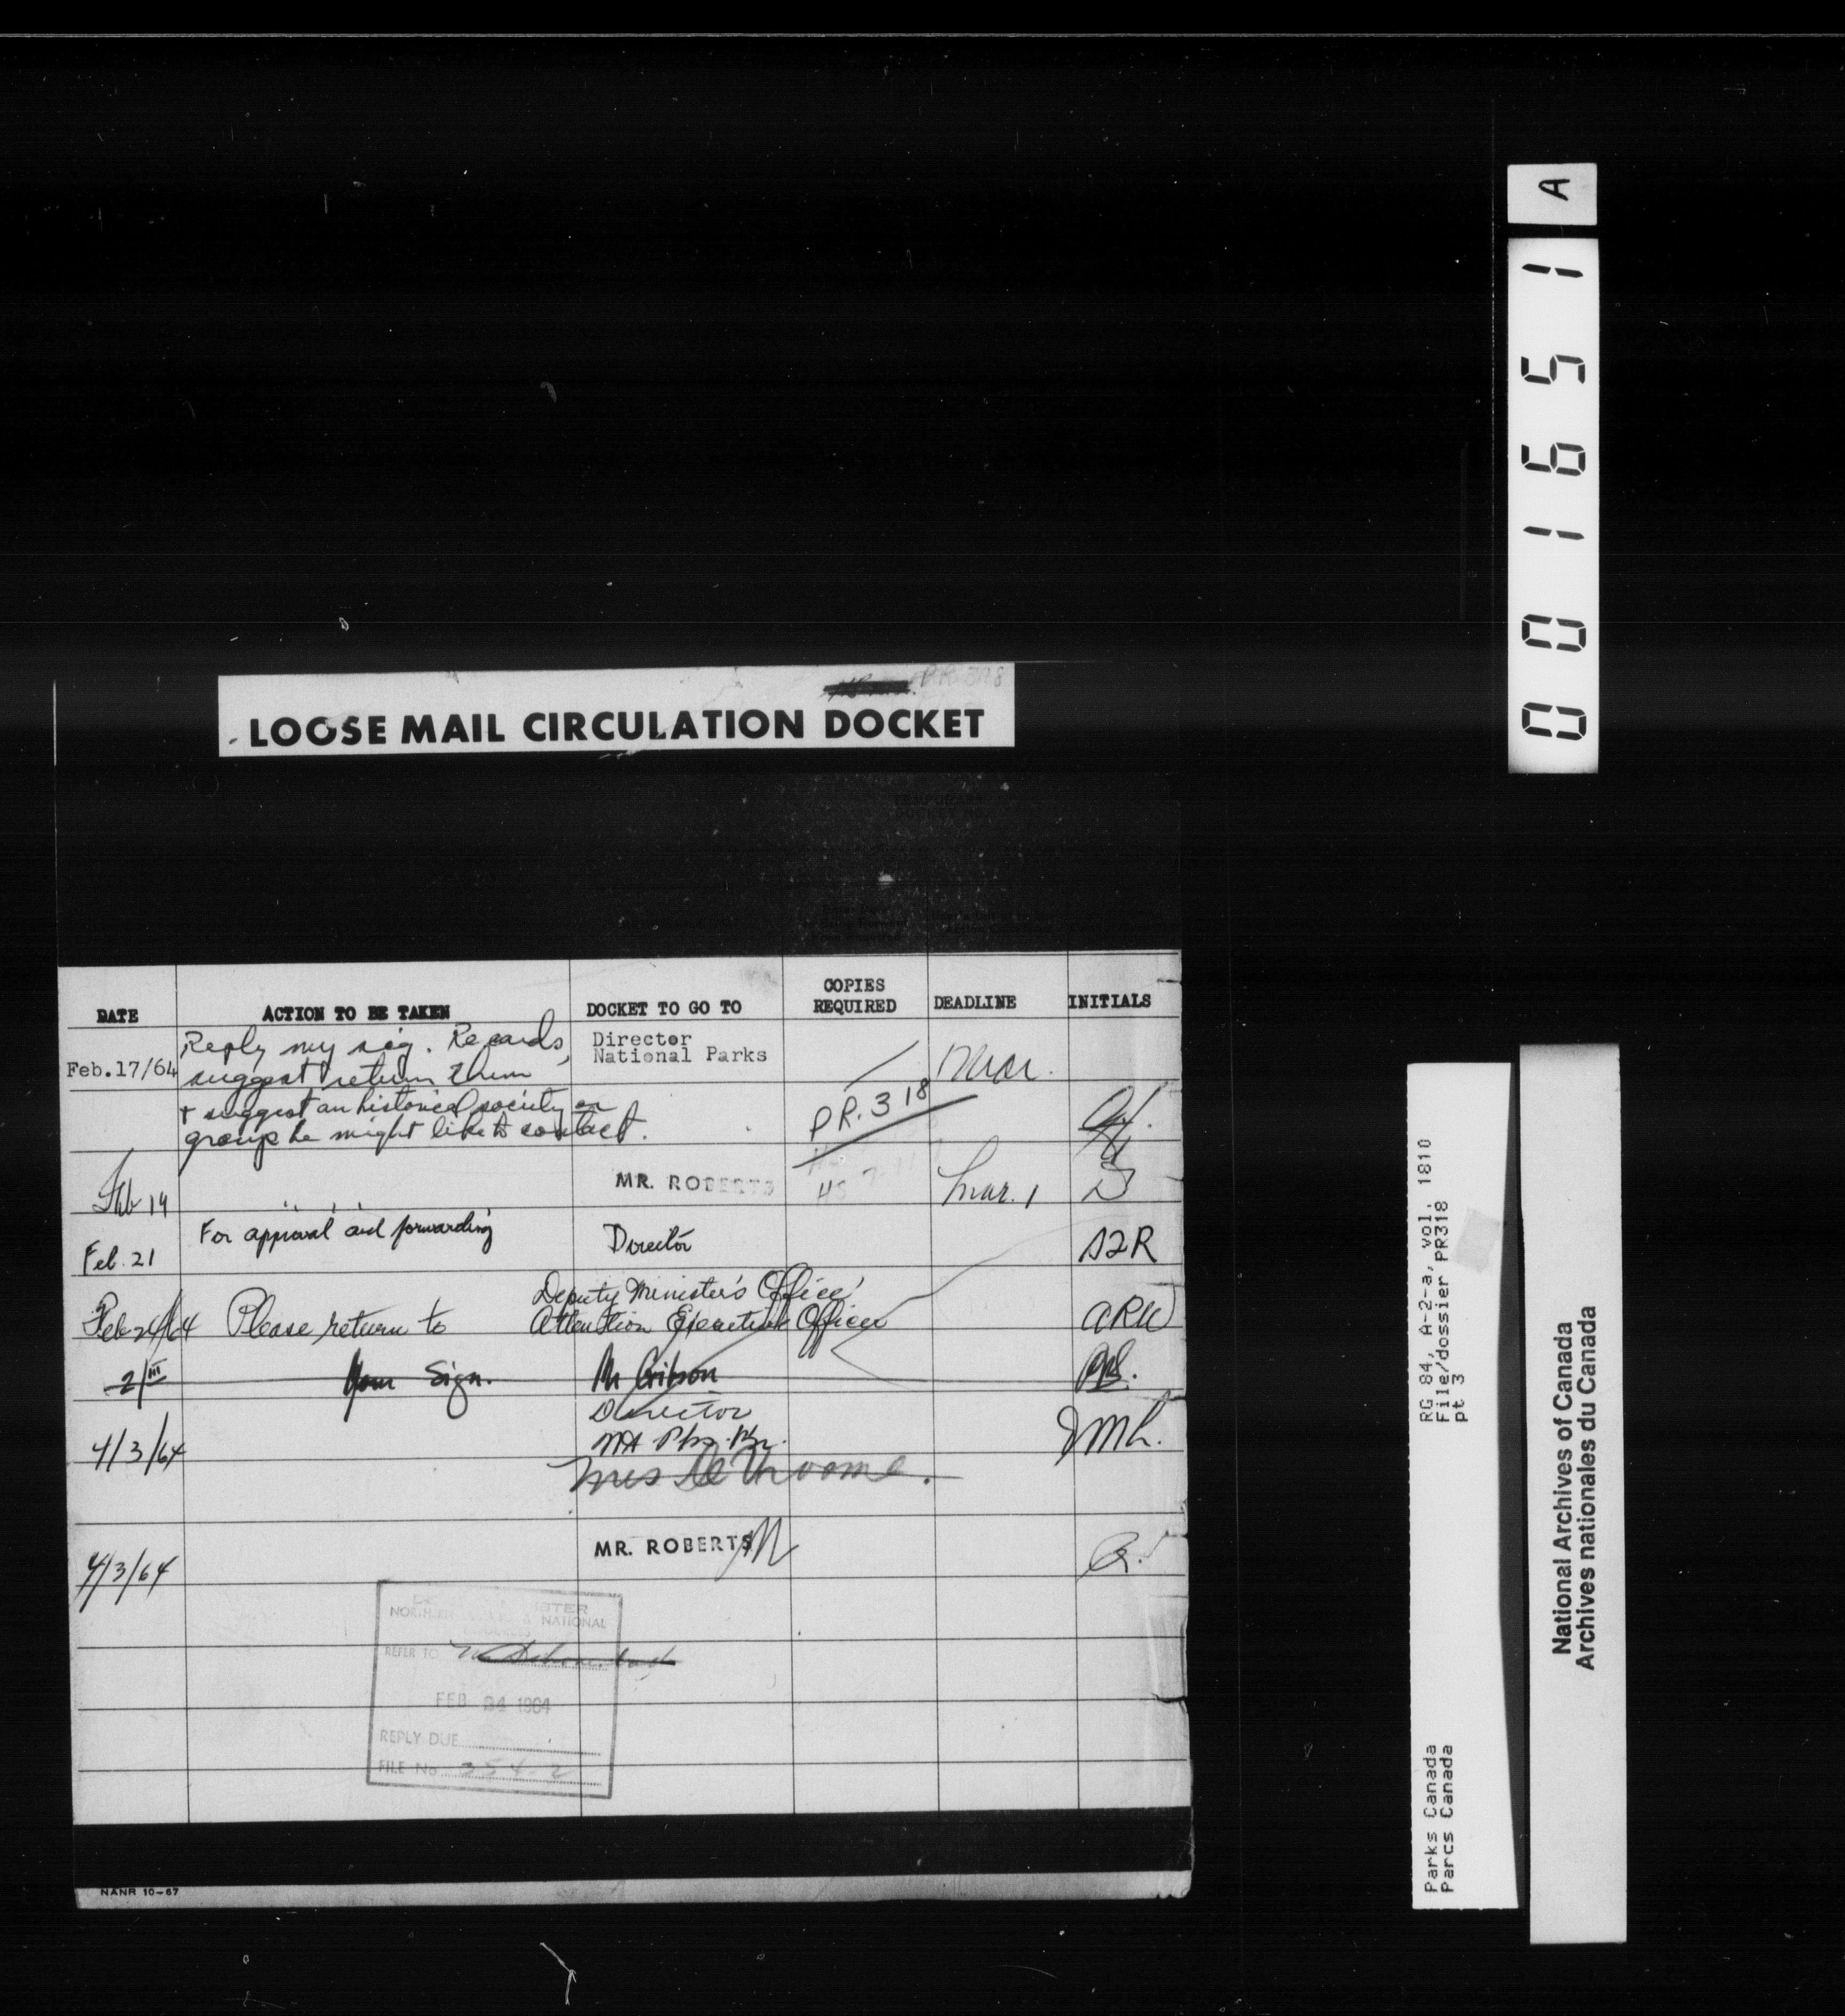 A
001651
P.R. 318
LOOSE MAIL CIRCULATION DOCKET
TEMPORARY
DOCKET
DATE
ACTION TO BE TAKEN
DOCKET TO GO TO
COPIES
REQUIRED
DEADLINE
INITIALS
Feb.17/64
Reply my sig. Regards,
suggest return them
Director
National Parks
Mar.
+ suggest an historical society or
group he might like to contact.
PR. 318
Feb 19
" " "
MR. ROBERTS
HS
Mar. 1
Feb. 21
For approval and forwarding
Director
Feb 24/64
Please return to
Deputy Minister's Office
Attention Executive Officer
ARW
2/III
Your Sign.
Mr
Director
4/3/64
Mrs
JMh.
4/3/64
MR. ROBERTS
NORTHERN
NATIONAL
REFER TO
FEB 24 1964
REPLY DUE
FILE No. 354-2
NANR 10-67
RG 84, A-2-a, vol. 1810
File/dossier PR318
pt 3
Parks Canada
Parcs Canada
National Archives of Canada
Archives nationales du Canada